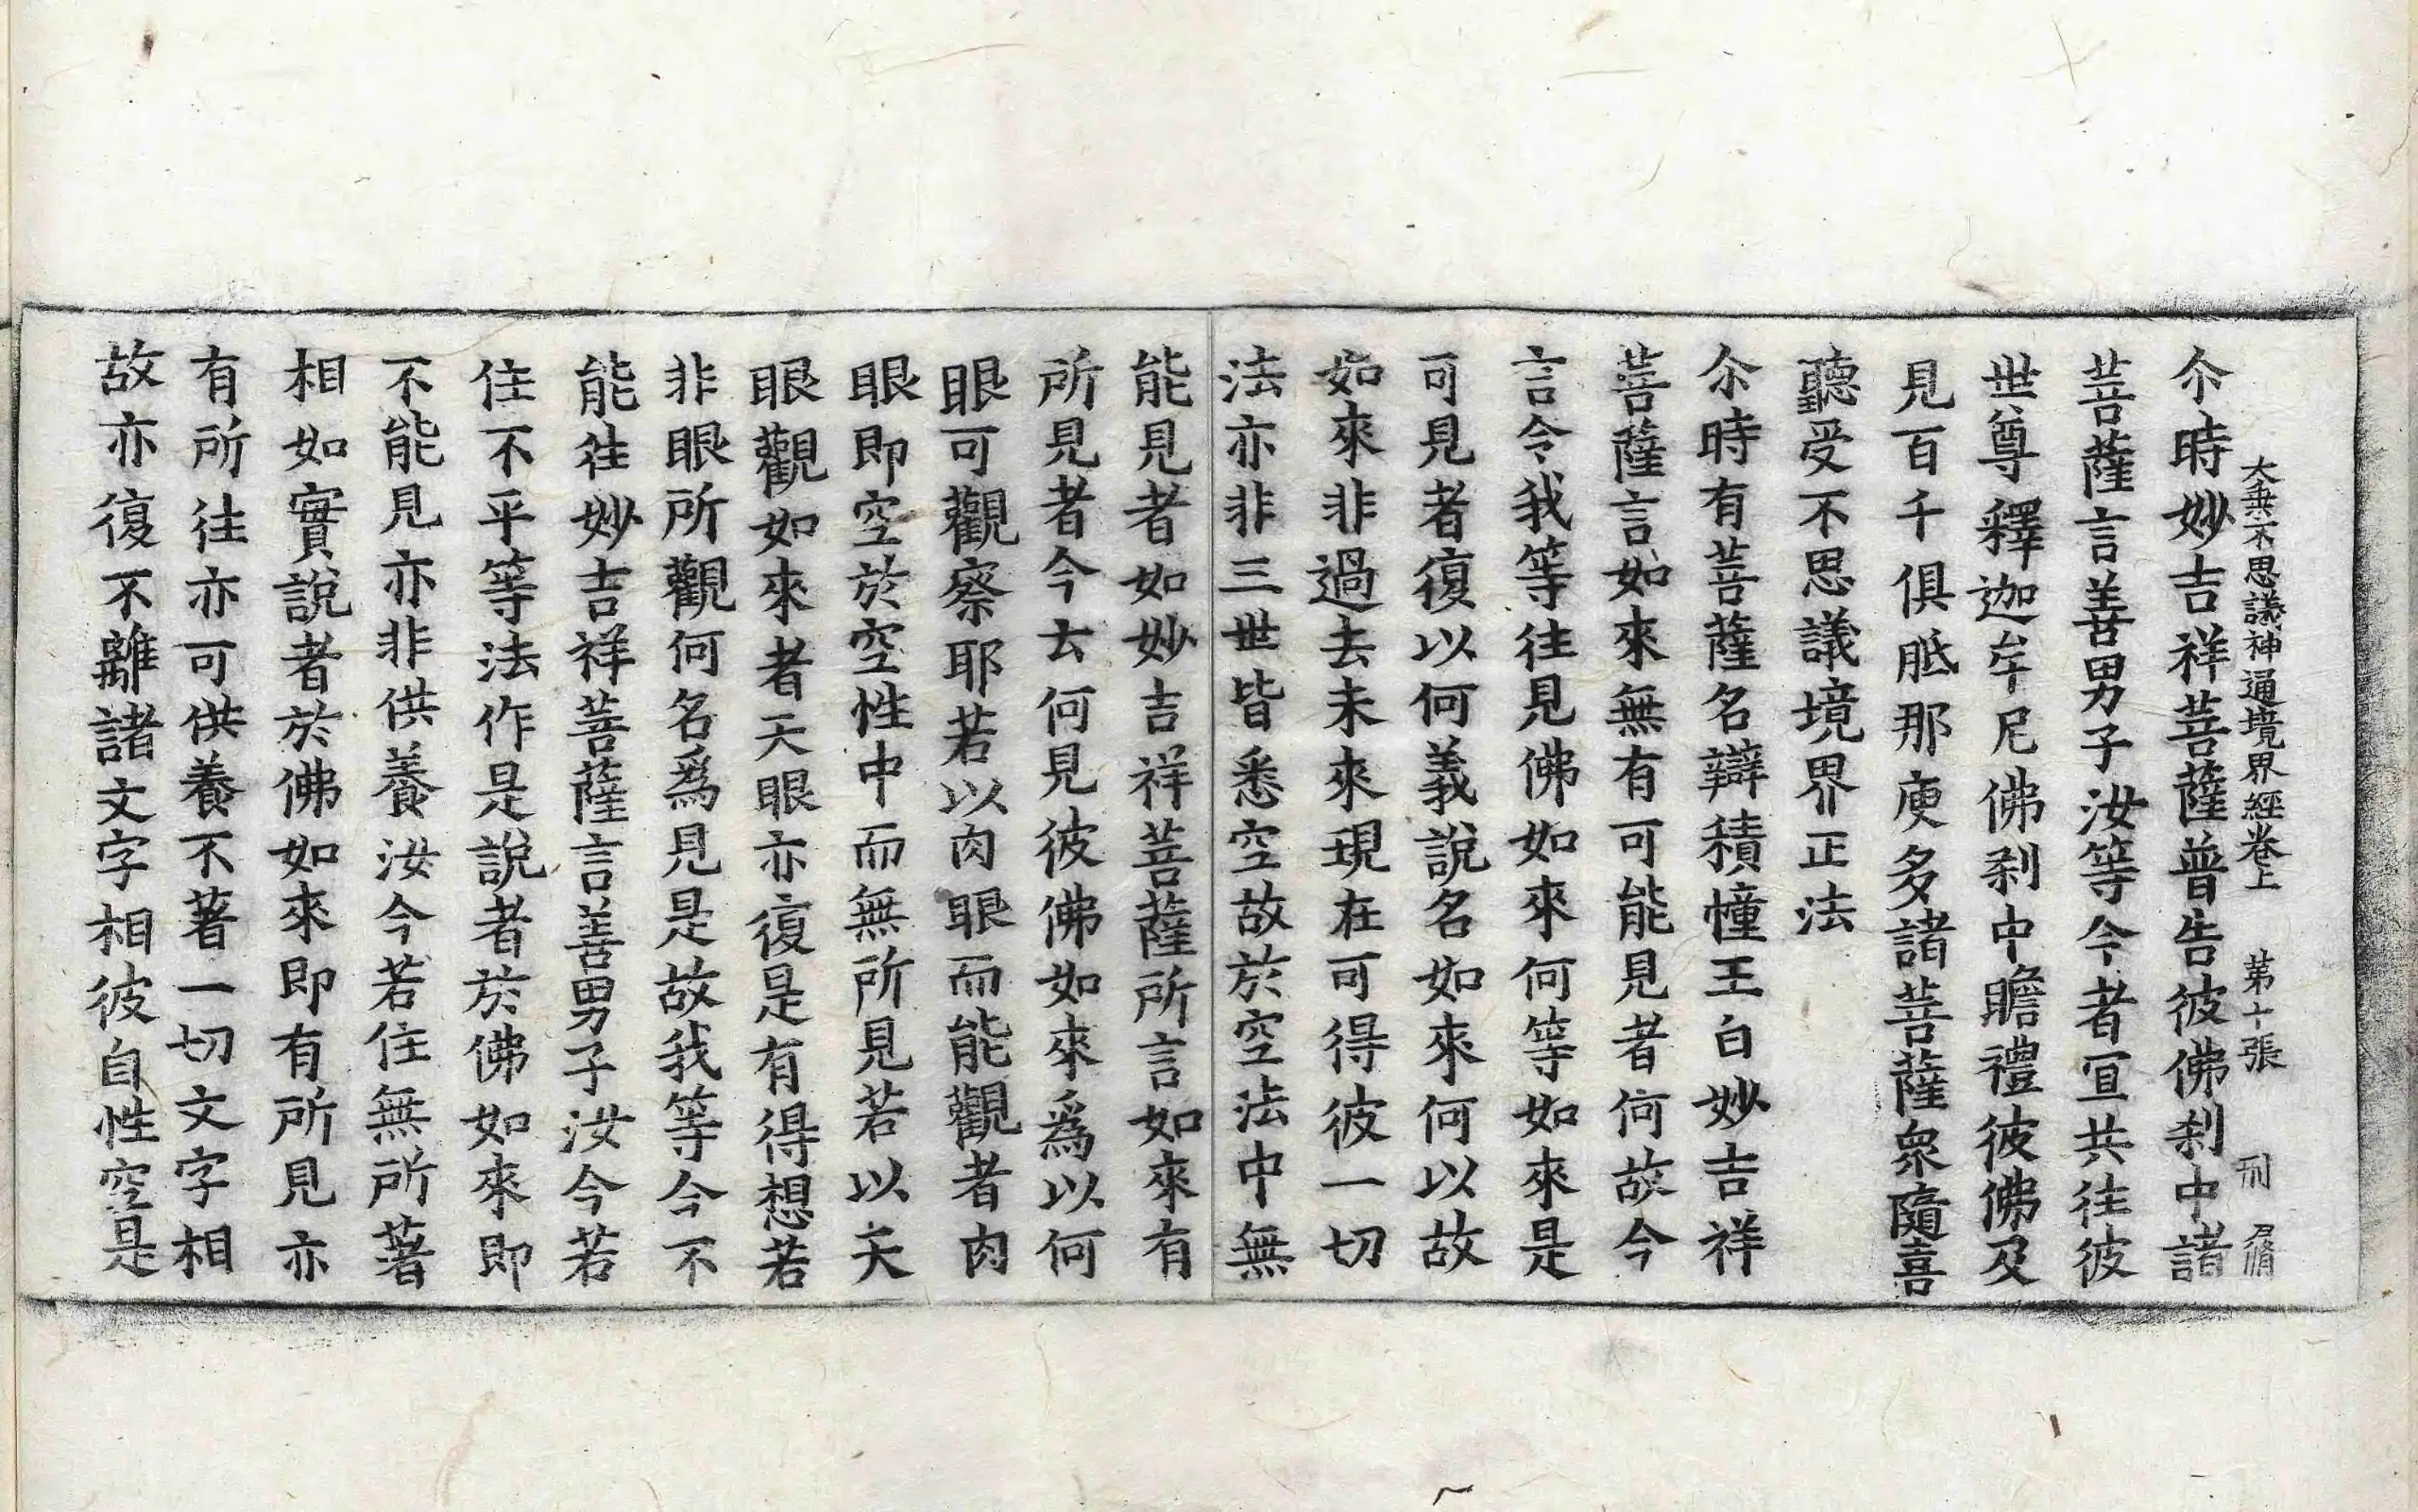 大乗不思議神通境界經卷上 第十張 刑
尒時妙吉祥菩薩普告彼佛刹中諸
菩薩言善男子汝等今者宜共往彼
世尊釋迦牟尼佛刹中瞻禮彼佛及
見百千俱胝那庾多諸菩薩衆隨喜
聽受不思議境界正法
尒時有菩薩名辯積幢王白妙吉祥
菩薩言如來無有可能見者何故今
言令我等往見佛如來何等如來是
可見者復以何義說名如來何以故
如來非過去未來現在可得彼一切
法亦非三世皆悉空故於空法中無
能見者如妙吉祥菩薩所言如來有
所見者今云何見彼佛如來爲以何
眼可觀察耶若以肉眼而能觀者肉
眼即空於空性中而無所見若以天
眼觀如來者天眼亦復是有得想若
非眼所觀何名爲見是故我等今不
能往妙吉祥菩薩言善男子汝今若
住不平等法作是說者於佛如來即
不能見亦非供養汝今若住無所著
相如實說者於佛如來即有所見亦
有所往亦可供養不著一切文字相
故亦復不離諸文字相彼自性空是